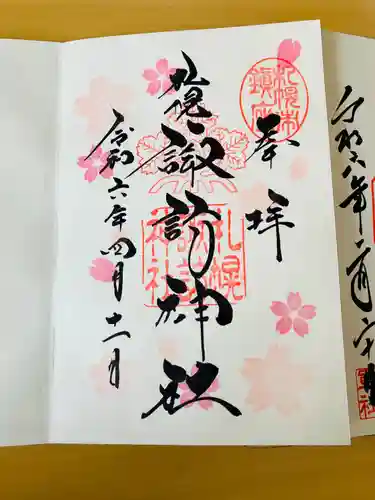 奉拝
札幌市
鎮座
札幌諏訪神社
札幌
諏訪
神社
令和六年四月十一日
令和六年二月